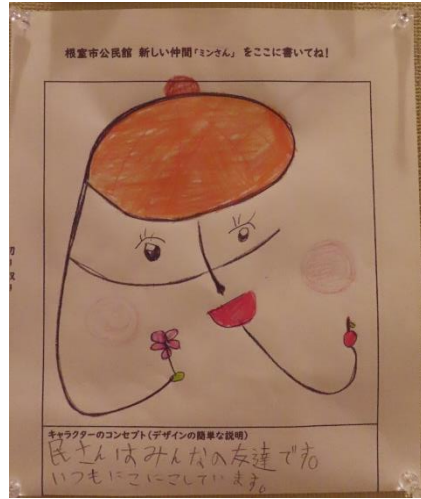 根室市公民館 新しい仲間「ミンさん」 をここに書いてね!
キャラクターのコンセプト(デザインの簡単な説明)
民さんはみんなの友達です。
いつもにこにこしています。